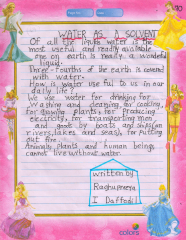 WATER AS A SOLVENT
Of all the liquids water is the
most useful and readily available
one on earth is really a wonderful
liquid.
Three-fourths of the earth is covered
with water.
How is water useful to us in our
daily life?
We use water for drinking for
washing and cleaning, for cooking,
for growing plants for producing
electricity, for transporting men
and goods by boats and ships (on
rivers, lakes and seas), for putting
out fire.
Animals, plants and human beings
cannot live without water.
written by
Raghupreeya
I Daffodill
colors